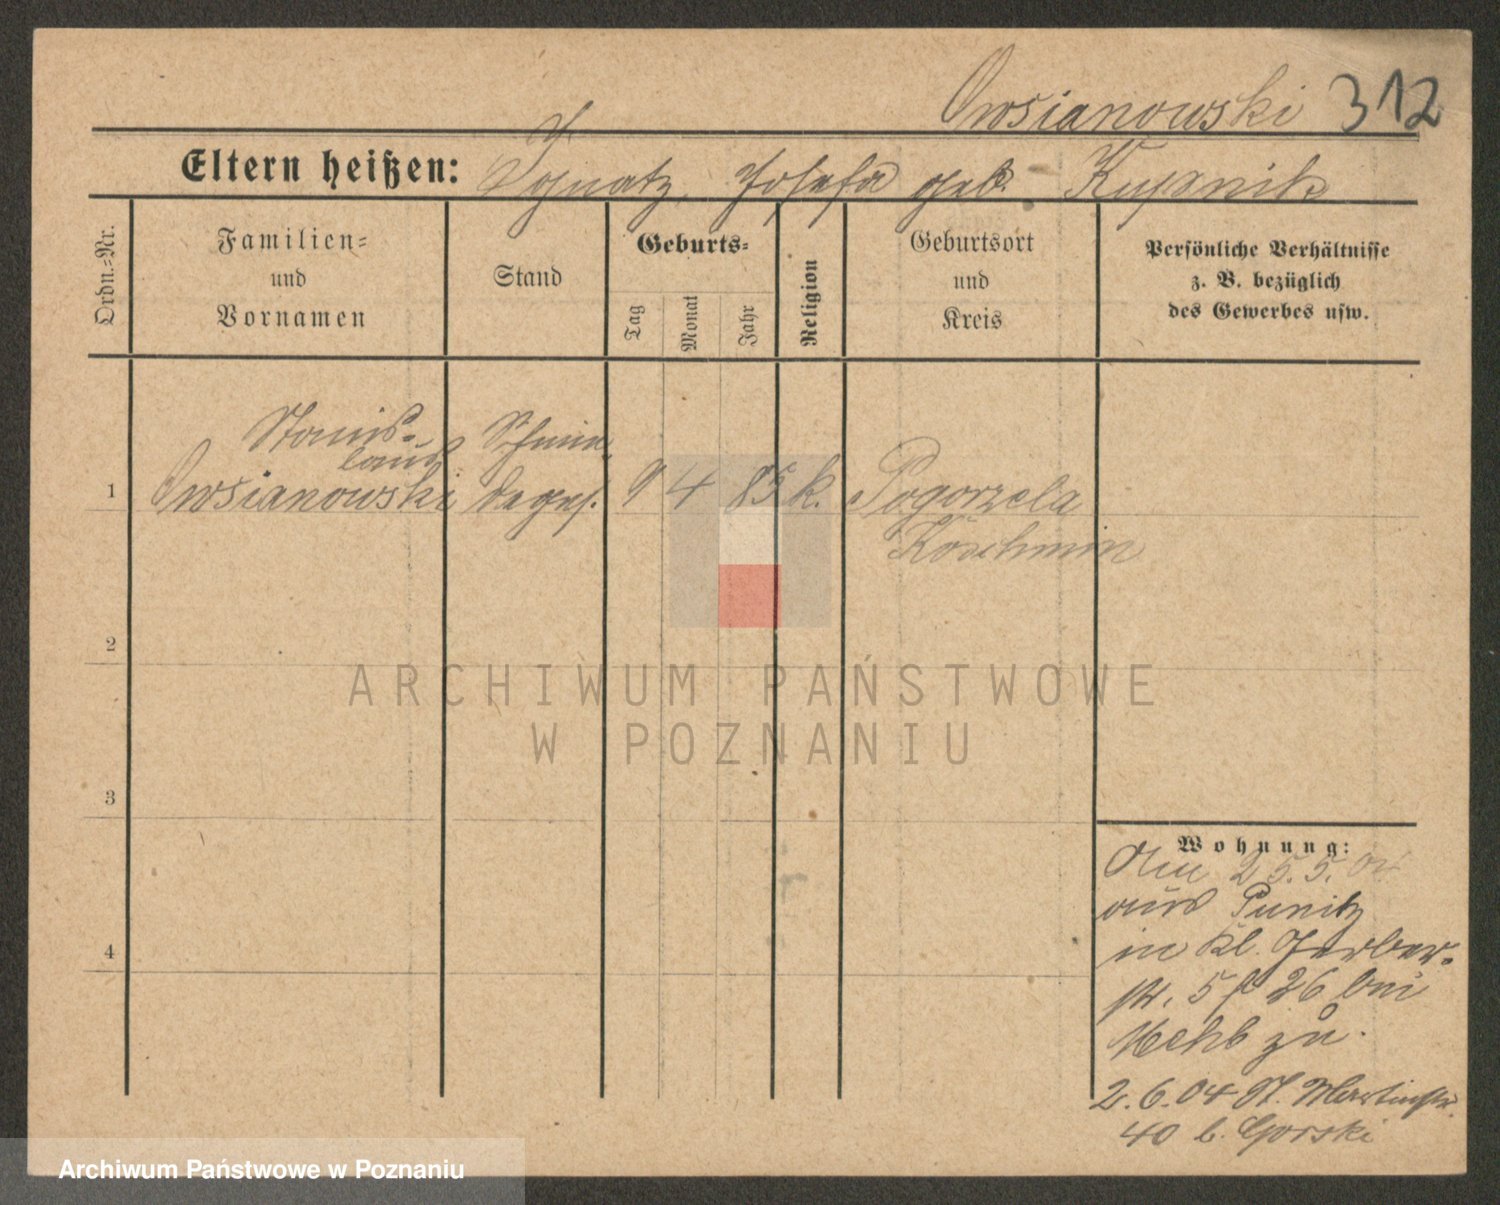 Owsianowski 312
Eltern heißen: Ignatz, Josefa geb. Kupnik
Ordn.=Nr.
Familien=
und
Vornamen
Stand
Geburts=
Tag
Monat
Jahr
Religion
Geburtsort
und
Kreis
Persönliche Verhältnisse
z. B. bezüglich
des Gewerbes usw.
1
Stanis-
laus
Owsianowski
Schnei-
derges.
9 4 85 k.
Pogorzela
Koschmin
2
3
4
ARCHIWUM PAŃSTWOWE
W POZNANIU
Wohnung:
Am 25.5.04
aus Punitz
in Kl. Gerber-
str. 5 26 bei
zu.
2.6.04 St. Martinstr.
40 b. Gorski
Archiwum Państwowe w Poznaniu